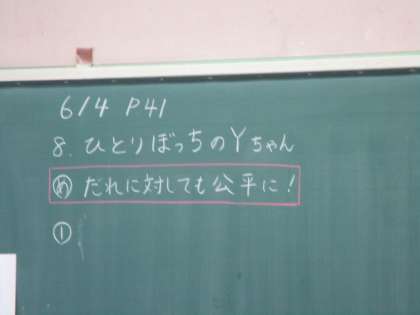 6/4 P41
8. ひとりぼっちのYちゃん
め だれに対しても公平に！
①